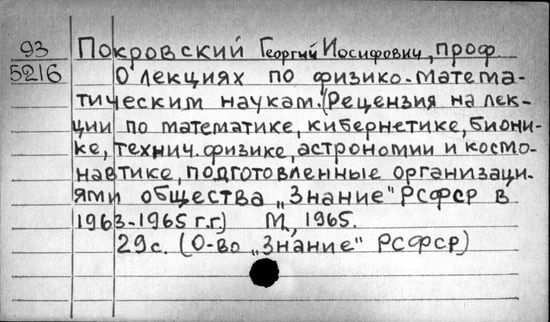 93
5216
Покровский Георгий Иосифович, проф.
О лекциях по физико-матема-
тическим наукам. (Рецензия на лек-
ции по математике, кибернетике, биони-
ке, технич. физике, астрономии и космо-
навтике, подготовленные организаци-
ями общества „Знание" РСФСР в
1963-1965 г.г.) М., 1965.
29с. (О-во „Знание" РСФСР)